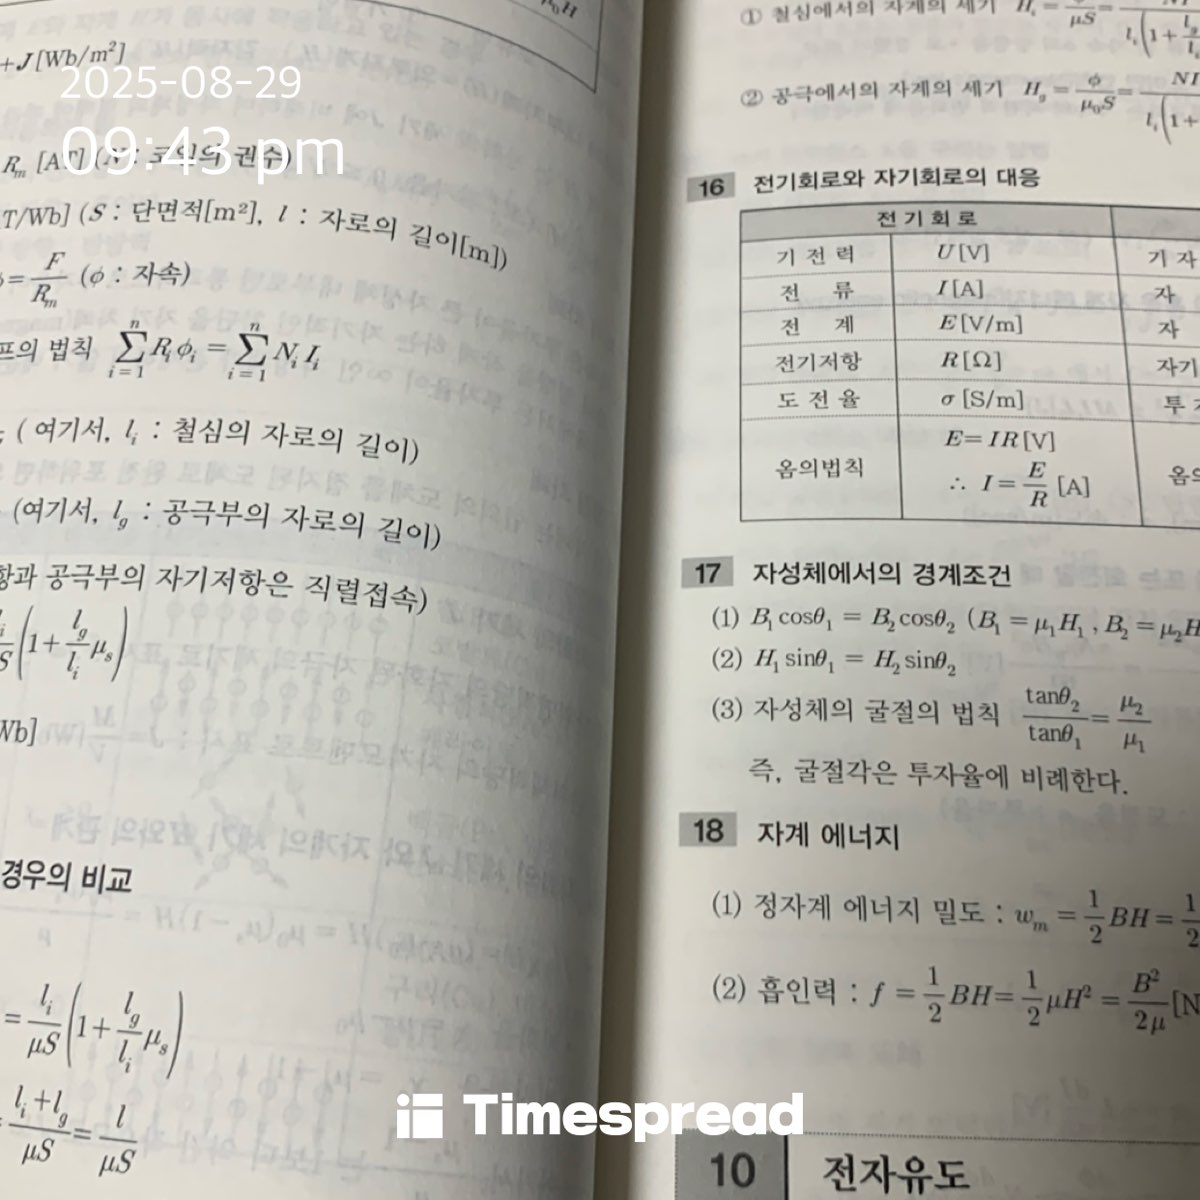 μ₀H
+J [Wb/m²]
2025-08-29
09:43 pm
Rₘ [AT] (N : 코일의 권수)
T/Wb] (S : 단면적[m²], l : 자로의 길이[m])
= F/Rₘ (φ : 자속)
의 법칙 ∑ᵢ₌₁ⁿ Rᵢφᵢ = ∑ᵢ₌₁ⁿ NᵢIᵢ
( 여기서, lᵢ : 철심의 자로의 길이)
(여기서, l_g : 공극부의 자로의 길이)
항과 공극부의 자기저항은 직렬접속)
(1 + l_g/lᵢ μₛ)
Wb]
경우의 비교
= lᵢ/μS (1 + l_g/lᵢ μₛ)
lᵢ+l_g/μS = l/μS
① 철심에서의 자계의 세기 Hᵢ = φ/μS = NI/lᵢ(1 + l_g/lᵢ
② 공극에서의 자계의 세기 H_g = φ/μ₀S = NI/lᵢ(1 +
16 전기회로와 자기회로의 대응
전기회로
기전력 U[V] 기자
전류 I[A] 자
전계 E[V/m] 자
전기저항 R[Ω] 자기
도전율 σ[S/m] 투
옴의법칙 E=IR[V] 옴의
∴ I = E/R [A]
17 자성체에서의 경계조건
(1) B₁cosθ₁ = B₂cosθ₂ (B₁ = μ₁H₁, B₂ = μ₂H
(2) H₁sinθ₁ = H₂sinθ₂
(3) 자성체의 굴절의 법칙 tanθ₂/tanθ₁ = μ₂/μ₁
즉, 굴절각은 투자율에 비례한다.
18 자계 에너지
(1) 정자계 에너지 밀도 : wₘ = 1/2 BH = 1/2
(2) 흡인력 : f = 1/2 BH = 1/2 μH² = B²/2μ [N
10 전자유도
Timespread